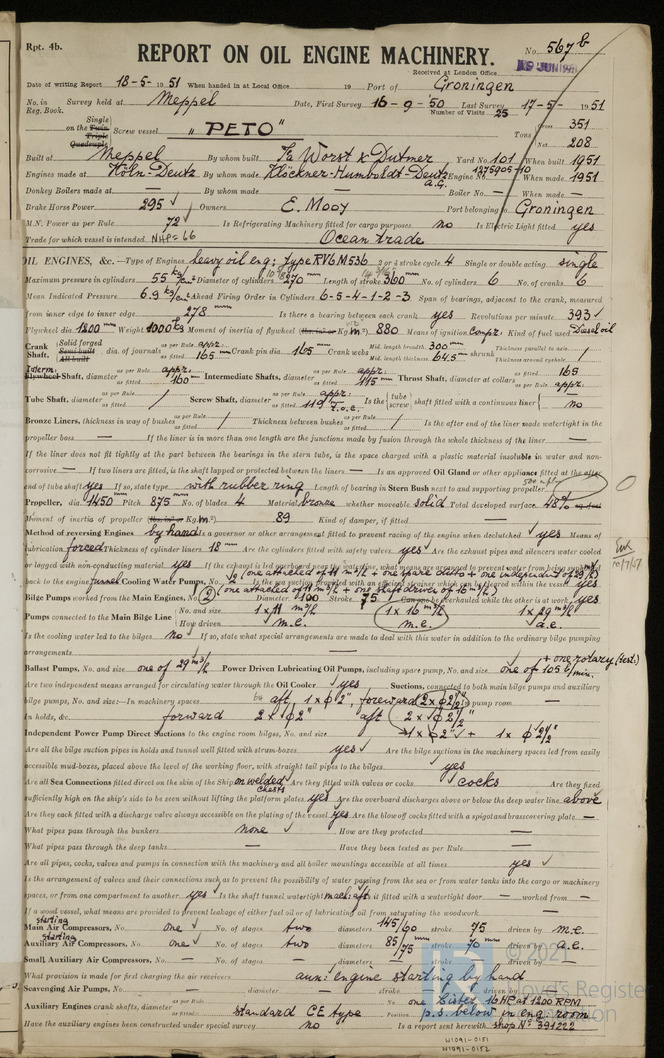 Rpt. 4b.
REPORT ON OIL ENGINE MACHINERY.
No. 567b
Received at London Office
Date of writing Report 18-5-1951 When handed in at Local Office 19 Port of Groningen
No. in Reg. Book. Survey held at Meppel Date, First Survey 16-9-'50 Last Survey 17-5-1951
Number of Visits 25
on the Single Twin Triple Quadruple Screw vessel "PETO" Tons Gross 351 Net 208
Built at Meppel By whom built Fa Worst & Dutmer Yard No. 101 When built 1951
Engines made at Köln-Deutz By whom made Klöckner-Humboldt-Deutz A.G. Engine No. 1275905-10 When made 1951
Donkey Boilers made at — By whom made — Boiler No. — When made —
Brake Horse Power 295 Owners E. Mooy Port belonging to Groningen
M.N. Power as per Rule 72 Is Refrigerating Machinery fitted for cargo purposes no Is Electric Light fitted yes
Trade for which vessel is intended. NHP=66 Ocean trade
OIL ENGINES, &c. —Type of Engines heavy oil eng: type RV6M536 2 or 4 stroke cycle 4 Single or double acting single
Maximum pressure in cylinders 55 kg/cm² Diameter of cylinders 270 mm Length of stroke 360 mm No. of cylinders 6 No. of cranks 6
Mean Indicated Pressure 6.9 kg/cm² Ahead Firing Order in Cylinders 6-5-4-1-2-3 Span of bearings, adjacent to the crank, measured
from inner edge to inner edge 278 mm Is there a bearing between each crank yes Revolutions per minute 393
Flywheel dia. 1200 mm Weight 1000 kg Moment of inertia of flywheel (lbs. in² or Kg.m²) 880 Means of ignition compr. Kind of fuel used Diesel oil
Crank Shaft, Solid forged Semi built All built dia. of journals as per Rule appr. as fitted 165 mm Crank pin dia. 165 mm Crank webs Mid. length breadth 300 mm Mid. length thickness 64.5 mm shrunk Thickness parallel to axis / Thickness around eyehole /
Interm: Flywheel Shaft, diameter as per Rule appr. as fitted 160 mm Intermediate Shafts, diameter as per Rule appr. as fitted 115 mm Thrust Shaft, diameter at collars as fitted 165 as per Rule appr.
Tube Shaft, diameter as per Rule as fitted / Screw Shaft, diameter as per Rule appr. as fitted 119 mm Is the tube screw shaft fitted with a continuous liner no
Bronze Liners, thickness in way of bushes as per Rule as fitted / Thickness between bushes as per Rule as fitted / Is the after end of the liner made watertight in the
propeller boss — If the liner is in more than one length are the junctions made by fusion through the whole thickness of the liner —
If the liner does not fit tightly at the part between the bearings in the stern tube, is the space charged with a plastic material insoluble in water and non-
corrosive — If two liners are fitted, is the shaft lapped or protected between the liners — Is an approved Oil Gland or other appliance fitted at the after
end of tube shaft yes If so, state type with rubber ring Length of bearing in Stern Bush next to and supporting propeller
Propeller, dia. 1450 mm Pitch 875 mm No. of blades 4 Material bronze whether moveable solid Total developed surface 48%
Moment of inertia of propeller (lbs. in² or Kg.m²) 89 Kind of damper, if fitted —
Method of reversing Engines by hand Is a governor or other arrangement fitted to prevent racing of the engine when declutched yes Means of
lubrication forced Thickness of cylinder liners 18 mm Are the cylinders fitted with safety valves yes Are the exhaust pipes and silencers water cooled
or lagged with non-conducting material yes If the exhaust is led overboard near the waterline, what means are arranged to prevent water being
back to the engine funnel Cooling Water Pumps, No. 2 (one attached of 11 m³/h + one spare ditto + one independent of 29 m³/h)
Bilge Pumps worked from the Main Engines, No. 2 (one attached of 11 m³/h + one shaft driven of 16 m³/h) Diameter 100 Stroke 75 Can one be overhauled while the other is at work yes
Pumps connected to the Main Bilge Line No. and size 1 x 11 m³/h 1 x 16 m³/h 1 x 29 m³/h
How driven m.e. m.e. a.e.
Is the cooling water led to the bilges no If so, state what special arrangements are made to deal with this water in addition to the ordinary bilge pumping
arrangements —
Ballast Pumps, No. and size one of 29 m³/h Power Driven Lubricating Oil Pumps, including spare pump, No. and size one of 105 l/min. + one rotary (
Are two independent means arranged for circulating water through the Oil Cooler yes Suctions, connected to both main bilge pumps and auxiliary
bilge pumps, No. and size:—In machinery spaces aft, 1 x φ 2", forward 2 x φ 2½" In pump room —
In holds, &c. forward 2 x φ 2" aft 2 x φ 2½"
Independent Power Pump Direct Suctions to the engine room bilges, No. and size 1 x φ 2" + 1 x φ 2½"
Are all the bilge suction pipes in holds and tunnel well fitted with strum-boxes yes Are the bilge suctions in the machinery spaces led from easily
accessible mud-boxes, placed above the level of the working floor, with straight tail pipes to the bilges yes
Are all Sea Connections fitted direct on the skin of the Ship on welded chests Are they fitted with valves or cocks cocks Are they fixed
sufficiently high on the ship's side to be seen without lifting the platform plates yes Are the overboard discharges above or below the deep water line above
Are they each fitted with a discharge valve always accessible on the plating of the vessel yes Are the blow off cocks fitted with a spigot and brass covering plate —
What pipes pass through the bunkers none How are they protected —
What pipes pass through the deep tanks — Have they been tested as per Rule —
Are all pipes, cocks, valves and pumps in connection with the machinery and all boiler mountings accessible at all times yes
Is the arrangement of valves and their connections such as to prevent the possibility of water passing from the sea or from water tanks into the cargo or machinery
spaces, or from one compartment to another yes Is the shaft tunnel watertight mach: aft Is it fitted with a watertight door — worked from —
If a wood vessel, what means are provided to prevent leakage of either fuel oil or of lubricating oil from saturating the woodwork —
Main starting Air Compressors, No. one No. of stages two diameters 145/60 stroke 75 driven by m.e.
Auxiliary starting Air Compressors, No. one No. of stages two diameters 85/75 mm stroke 70 mm driven by a.e.
Small Auxiliary Air Compressors, No. — No. of stages — diameters — stroke — driven by —
What provision is made for first charging the air receivers aux: engine starting by hand
Scavenging Air Pumps, No. — diameter — stroke — driven by —
Auxiliary Engines crank shafts, diameter as per Rule as fitted standard CE type No. one Lister 16 HP at 1200 RPM Position p.s. below in eng: room
Have the auxiliary engines been constructed under special survey no Is a report sent herewith shop No 391222
© 2021
Lloyd's Register
Foundation
W1091-0151
W1091-0152